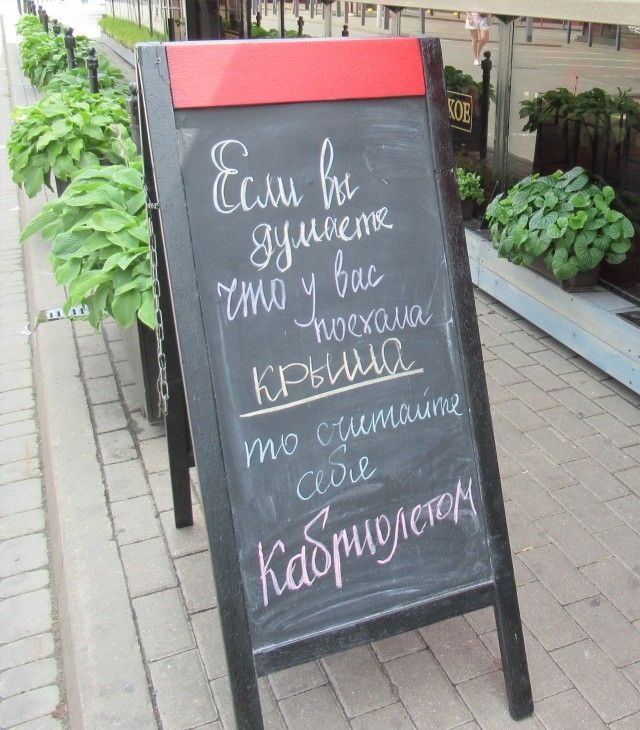 Если вы
думаете
что у вас
поехала
крыша
то считайте
себя
Кабриолетом
КОЕ